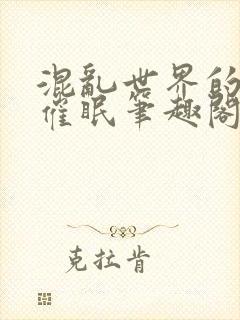 混亂世界的
催眠筆趣閣
克拉肯